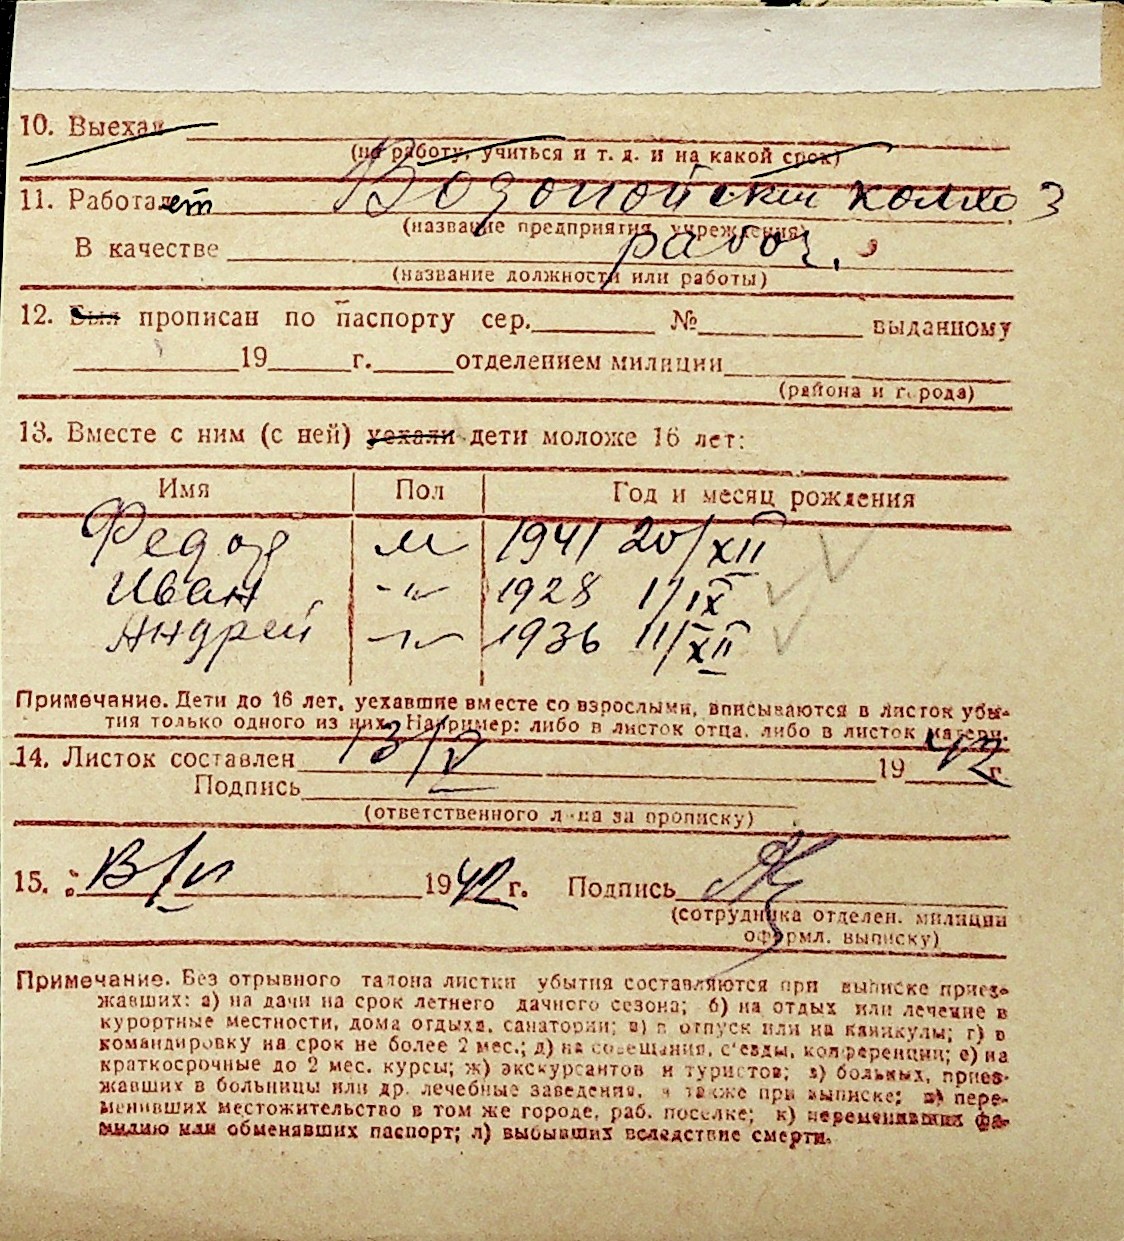 10. Выехал
(на работу, учиться и т. д. и на какой срок)
11. Работает Водопойский колхоз
(название предприятия, учреждения)
В качестве рабоч.
(название должности или работы)
12. Был прописан по паспорту сер. № выданному
19 г. отделением милиции
(района и города)
13. Вместе с ним (с ней) уехали дети моложе 16 лет:
Имя Пол Год и месяц рождения
Федор м 1941 20/XII
Иван -"- 1928 1/IX
Андрей -"- 1936 11/XII
Примечание. Дети до 16 лет, уехавшие вместе со взрослыми, вписываются в листок убы-
тия только одного из них. Например: либо в листок отца, либо в листок матери.
14. Листок составлен 13/V 1942 г.
Подпись
(ответственного л-ца за прописку)
15. 1942 г. Подпись
(сотрудника отделен. милиции
оформл. выписку)
Примечание. Без отрывного талона листки убытия составляются при выписке приез-
жавших: а) на дачи на срок летнего дачного сезона; б) на отдых или лечение в
курортные местности, дома отдыха, санатории; в) в отпуск или на каникулы; г) в
командировку на срок не более 2 мес.; д) на совещания, с'езды, конференции; е) на
краткосрочные до 2 мес. курсы; ж) экскурсантов и туристов; з) больных, приез-
жавших в больницы или др. лечебные заведения, а также при выписке; и) пере-
менивших местожительство в том же городе, раб. поселке; к) переменивших фа-
милию или обменявших паспорт; л) выбывших вследствие смерти.